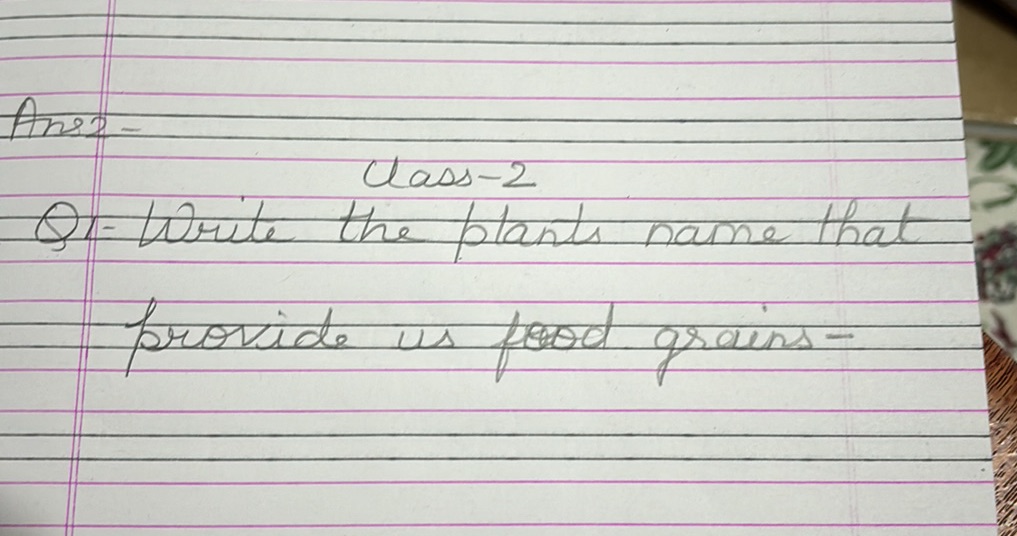 Ans2-
Class-2
Q1- Write the plants name that
provide us food grains-